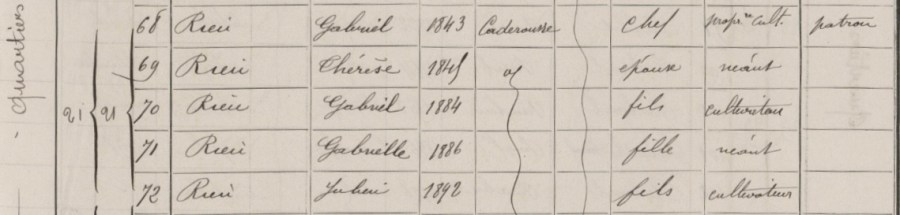 Quartiers
68 Rieu Gabriel 1843 Caderousse chef propre cult. patron
69 Rieu Thérèse 1845 d épouse néant
21 21 70 Rieu Gabriel 1884 fils cultivateur
71 Rieu Gabrielle 1886 fille néant
72 Rieu Julien 1892 fils cultivateur